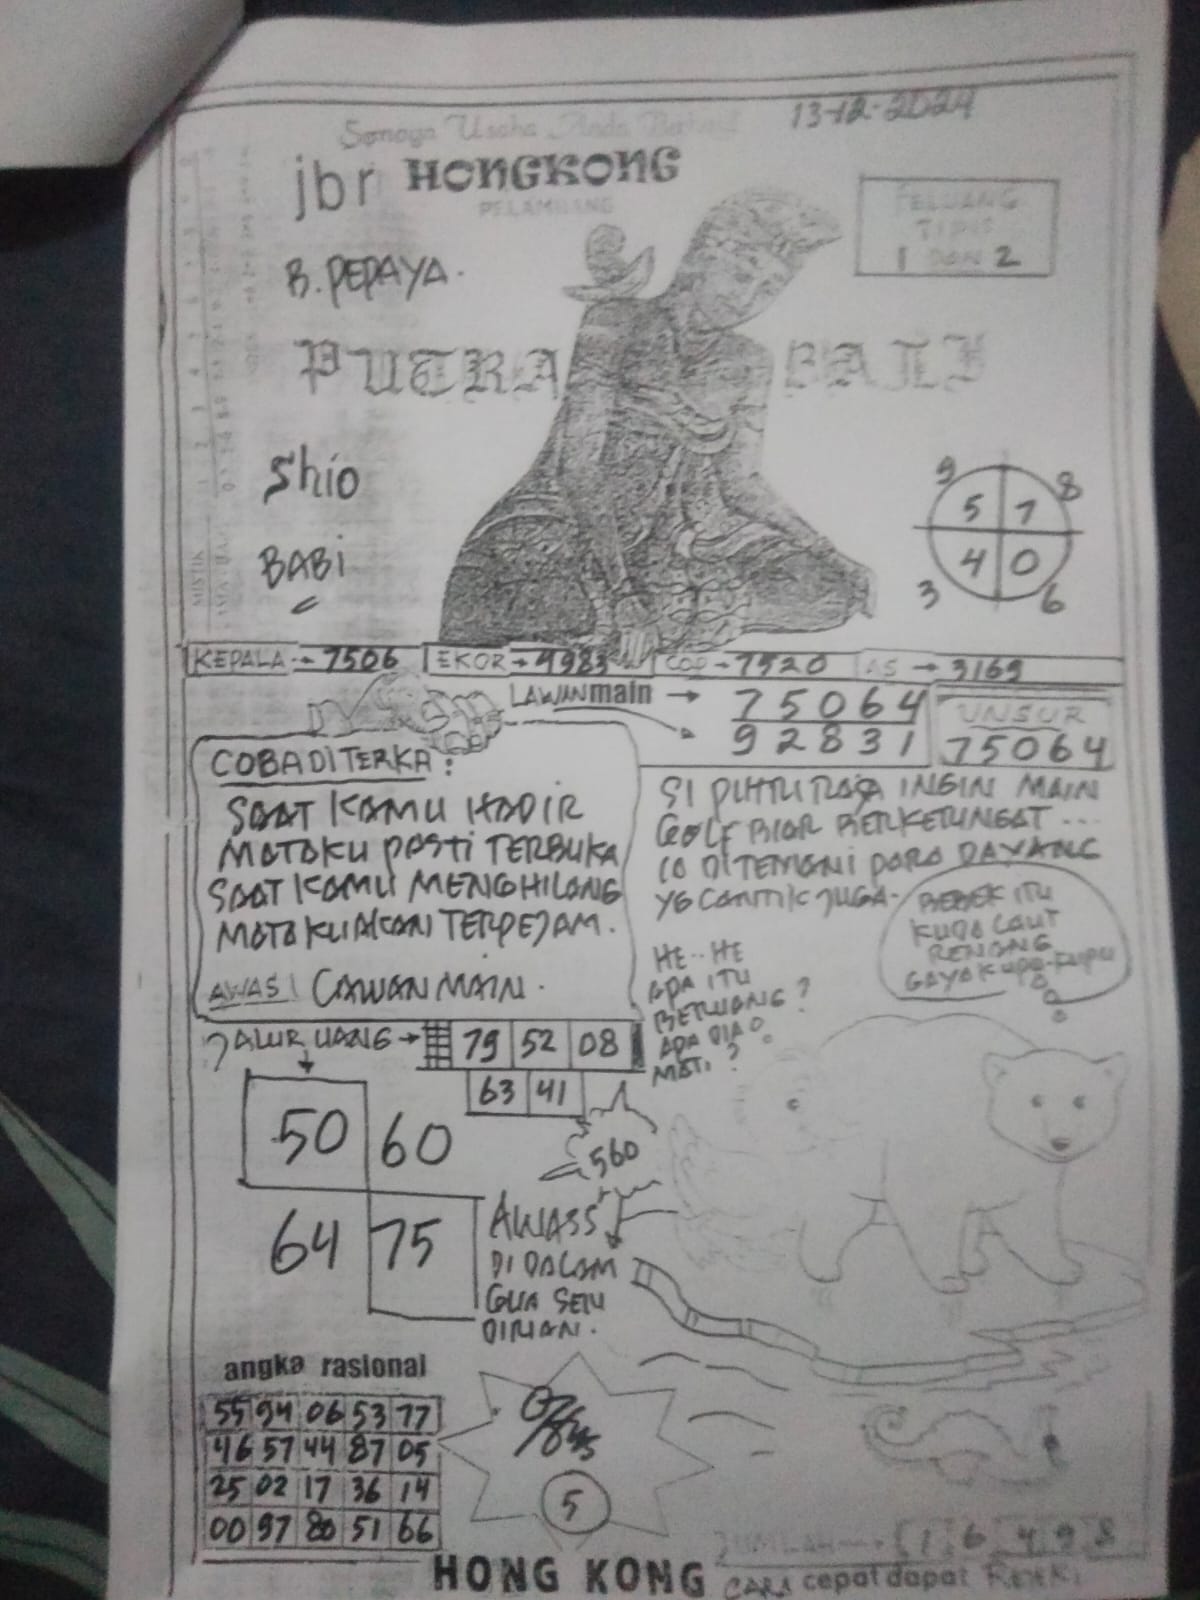 13-12-2024
Semoga Usaha Anda Berhasil
jbr HONGKONG
B. PEPAYA.
PELUANG
TIPIS
1 DAN 2
PUTRA BALI
Shio
BABI
9 8
5 7
4 0
3 6
KEPALA → 7506 EKOR → 4983 COP → 7920 AS → 3169
LAWAN main → 75064
92831
UNSUR
75064
COBA DITERKA:
SAAT KAMU HADIR
MATAKU PASTI TERBUKA
SAAT KAMU MENGHILANG
MATAKU AKAN TERPEJAM.
AWAS! LAWAN MAIN.
SI PUTRI RAJA INGIN MAIN
GOLF BIAR BERKERINGAT ...
IA DITEMANI PARA DAYANG
YG CANTIK JUGA.
BEBEK ITU
KUDA LAUT
RENANG
GAYA KUPU-KUPU
HE..HE
APA ITU
BERUANG?
APA DIA
MATI?
JALUR UANG → 79 52 08
63 41
50 60
64 75
560
AWASS
DI DALAM
GUA
angka rasional
55 94 06 53 77
46 57 44 87 05
25 02 17 36 14
00 97 80 51 66
5
JUMLAH → 1 6 4 9 8
HONG KONG
CARA cepat dapat REJEKI